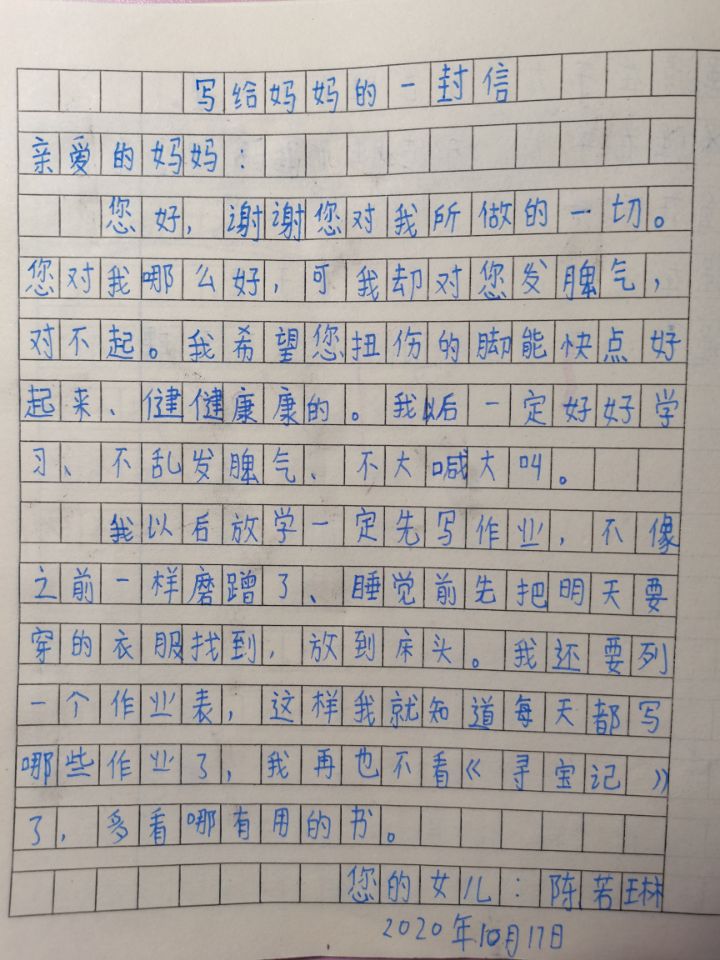 写给妈妈的一封信
亲爱的妈妈：
您好，谢谢您对我所做的一切。
您对我哪么好，可我却对您发脾气，
对不起。我希望您扭伤的脚能快点好
起来、健健康康的。我以后一定好好学
习、不乱发脾气、不大喊大叫。
我以后放学一定先写作业，不像
之前一样磨蹭了、睡觉前先把明天要
穿的衣服找到，放到床头。我还要列
一个作业表，这样我就知道每天都写
哪些作业了，我再也不看《寻宝记》
了，多看哪有用的书。
您的女儿：陈若琳
2020年10月17日